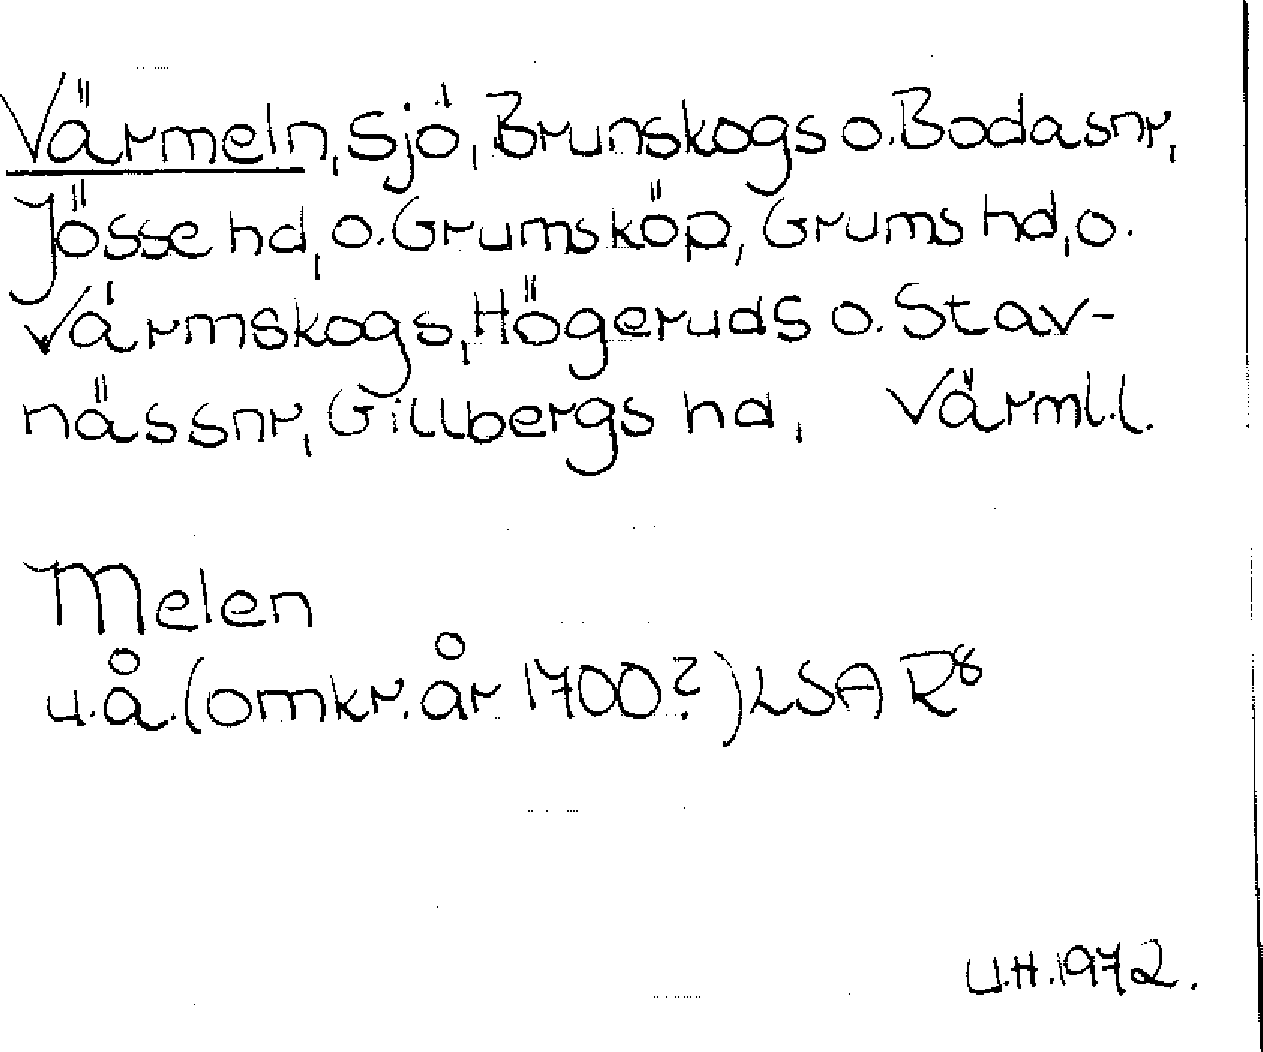 Värmeln, sjö, Brunskogs o. Boda snr,
Jösse hd, o. Grums köp, Grums hd, o.
Värmskogs, Högeruds o. Stav-
näs snr, Gillbergs hd, Värml.l.
Melen
u.å. (omkr. år 1700?) LSA R⁸
U.H. 1972.